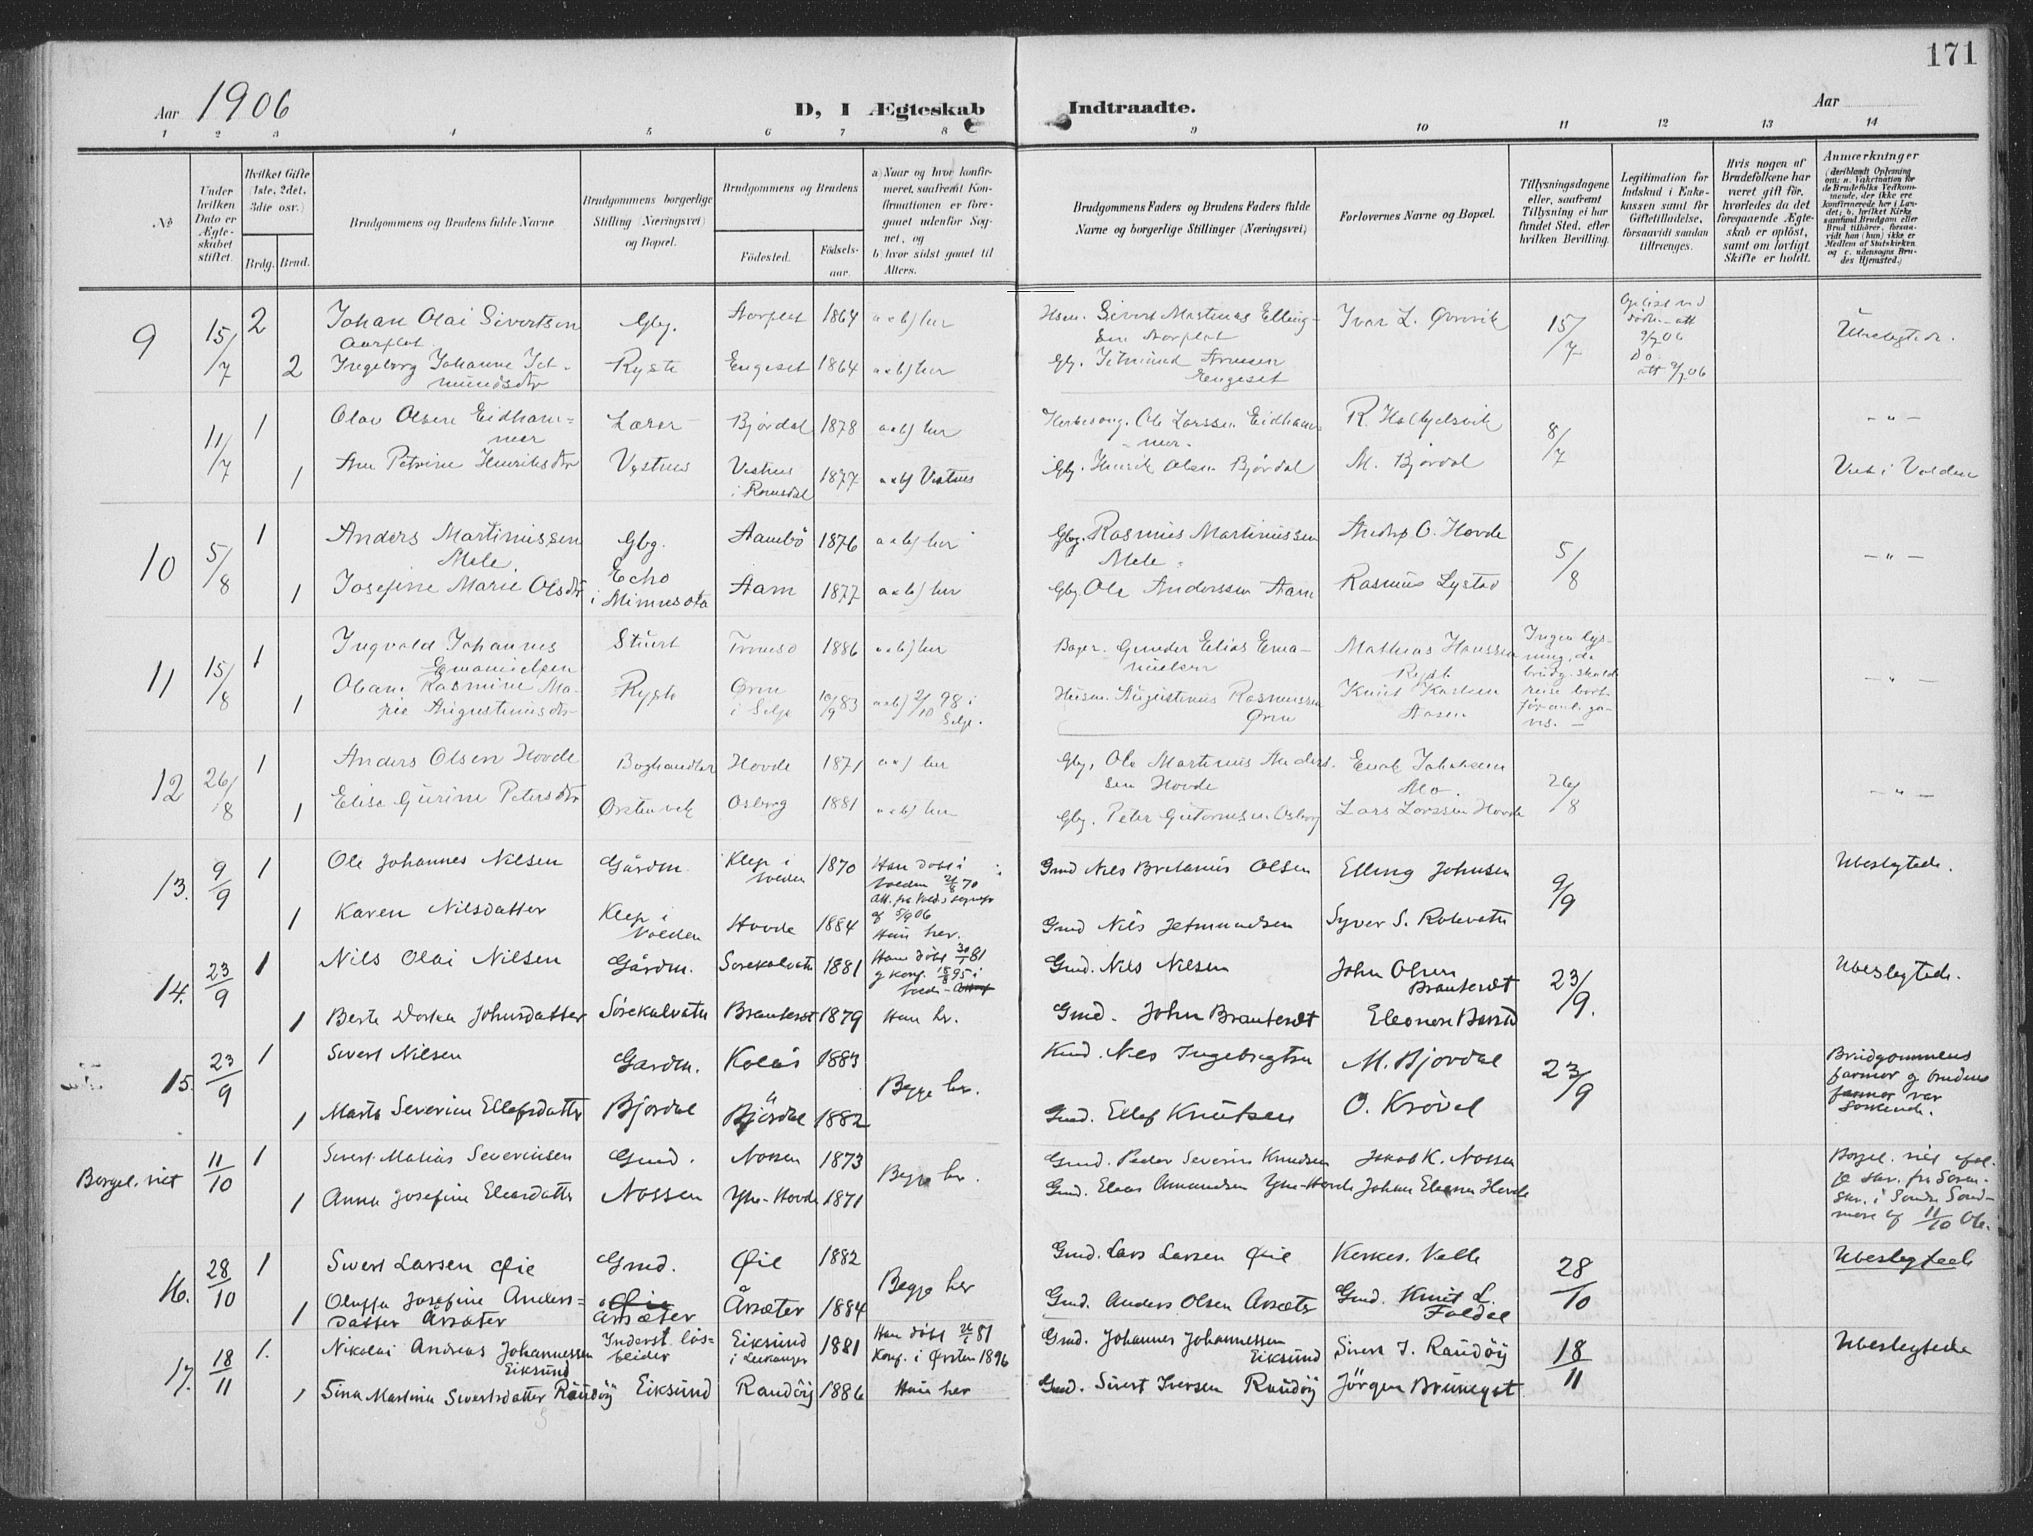 171
Aar 1906
D, I Ægteskab Indtraadte.
Aar
1 2 3 4 5 6 7 8 9 10 11 12 13 14
No
Under hvilken Dato er Ægteskabet stiftet.
Hvilket Gifte (1ste, 2det, 3die osr.)
Brdg. Brud.
Brudgommens og Brudens fulde Navne
Brudgommens borgerlige Stilling (Næringsvei) og Bopæl.
Brudgommens og Brudens
Fødested.
Fødselsaar.
a) Naar og hvor konfirmeret, saafremt Konfirmationen er foregaaet udenfor Sognet, og
b) hvor sidst gaaet til Alters.
Brudgommens Faders og Brudens Faders fulde Navne og borgerlige Stillinger (Næringsvei)
Forlovernes Navne og Bopæl.
Tillysningsdagene eller, saafremt Tillysning ei har fundet Sted, efter hvilken Bevilling.
Legitimation for Indskud i Enkekassen samt for Giftetilladelse, forsaavidt saadan tiltrenges.
Hvis nogen af Brudefolkene har været gift før, hvorledes da det foregaaende Ægteskab er opløst, samt om lovligt Skifte er holdt.
Anmærkninger
(deriblandt Oplysning om: a. Vakcination for de Brudefolks Vedkommende, der ikke ere konfirmerede her i Landet; b. hvilket Kirkesamfund Brudgom eller Brud tilhører, forsaavidt han (hun) ikke er Medlem af Statskirken og c. udensogns Brudes Hjemsted.)
9 15/7 2 Johan Olai Sivertsen Gbg. Aarflot 1864 a x b) her Hsm. Sivert Martinus Elling- Ivar L. Øvrevik 15/7 Ubeslegtede.
Aarflot sen Aarflot
2 Ingeborg Johanne Jet- Ryste Engeset 1864 a x b) her Gbg. Jetmund Arnesen
mundsdtr Engeset
11/7 1 Olav Olsen Eidham- Lærer Bjørdal 1878 a x b) her Ole Larssen Eidham- 8/7 - " -
mer mer.
1 Ane Petrine Henriksdtr Vestnes Vestnes 1877 a x b) Vestnes Gbg. Henrik Olsen Bjørdal M. Bjørdal Viet i Volden
i Romsdal
10 5/8 1 Anders Martinussen Gbg. 1876 a x b) her Gbg. Rasmus Martinussen O. Hovde 5/8 - " -
Mele Echo Mele.
1 Josefine Marie Olsdtr i Minnesota Aam 1877 a x b) her Gbg. Ole Anderssen Aam Rasmus Lystad
11 15/8 1 Ingvald Johannes Stuert Tromsø 1886 a x b) her Bager. Gunder Elias Ema- Mathias Hanssen Ingen lys-
Emanuelsen nuelsen Ryst ning, da
1 Oliane Rasmine Ma- Ryste Ørin 10/9 83 a x b) 2/10 98 i Husm. Augustinus Rasmussen Knut Knutsen brudg. skulde - " -
rie Augustinusdtr i Selje Selje. Ørin Aasen reise bort
12 26/8 1 Anders Olsen Hovde Boghandler Hovde 1871 a x b) her Gbg. Ole Martinus Anders- Enok Johansen 26/8
sen Hovde Mo.
1 Elise Gurine Petersdtr Ørstenvik Osborg 1881 a x b) her Gbg. Peter Guttormsen Osborg Lars Larssen Hovde - " -
13. 9/9 1 Ole Johannes Nilsen Gårdm. Klep i 1870 Han døbt i Gmd Nils Bretanus Olsen Elling Johnsen 9/9 Ubeslegtede.
Volden Volden 21/8 70
1 Karen Nilsdatter Klep i Hovde 1884 af 5/9 06 Gmd Nils Jetmundsen Syver S. Rotevatn
Volden Hun her.
14. 23/9 1 Nils Olai Nilsen Gårdm. 1881 Han døbt 30/1 81 Gmd. Nils Nilsen John Olsen 23/9. Ubeslegtede.
g konf. 18/8 95 i Brauteset
1 Berte Dorthea Johnsdatter 1879 Hun her. Gmd. John Eleonore
15. 23/9 1 Sivert Nilsen Gårdm. Kolås 1883 Begge her. Gmd. Nils Ingebrigtsen M. Bjørdal 23/9 Brudgommens
1 Marte Severine Ellefsdatter Bjørdal Bjørdal 1882 Gmd. Ellef Knutsen O. Krøvel farmor og brudens
farmor var
Søskende.
Borgel. viet 11/10 1 Sivert Matias Severinsen Gmd. Nossen 1873 Begge her. Gmd. Peder Severin Knudsen Jakob K. Nossen Borgel. viet iføl-
1 Anna Josefine Eliasdatter Nossen Ytre-Hovde 1871 Gmd. Elias Amundsen Ytre-Hovde Johan Hovde ge skr. fra Soren-
skr. i Søndre Sønd-
møre af 11/10 06.
16. 28/10 1 Sivert Larsen Øie Gmd. Øie 1882 Begge her Gmd. Lars Larsen Øie Kerkes. Velle 28/10 Ubeslegtede
1 Oluffa Josefine Anders- Øie Årsæter 1884 Gmd. Anders Olsen Årsæter Gmd. Knut L.
datter Årsæter Årsæter Foldal
17. 18/11 1. Nikolai Andreas Johannessen Inderst løs- Eiksund 1881 Han døbt 26/1 81 Gmd. Johannes Johannessen Sivert I. Raudøy 18/11 Ubeslegtede
Eiksund beider i Konf. i Ørsten 1896 Eiksund
1 Sina Martina Sivertsdatter Raudøy Eiksund Raudøy 1886 Hun her Gmd. Sivert Iversen Raudøy Jørgen Brungot